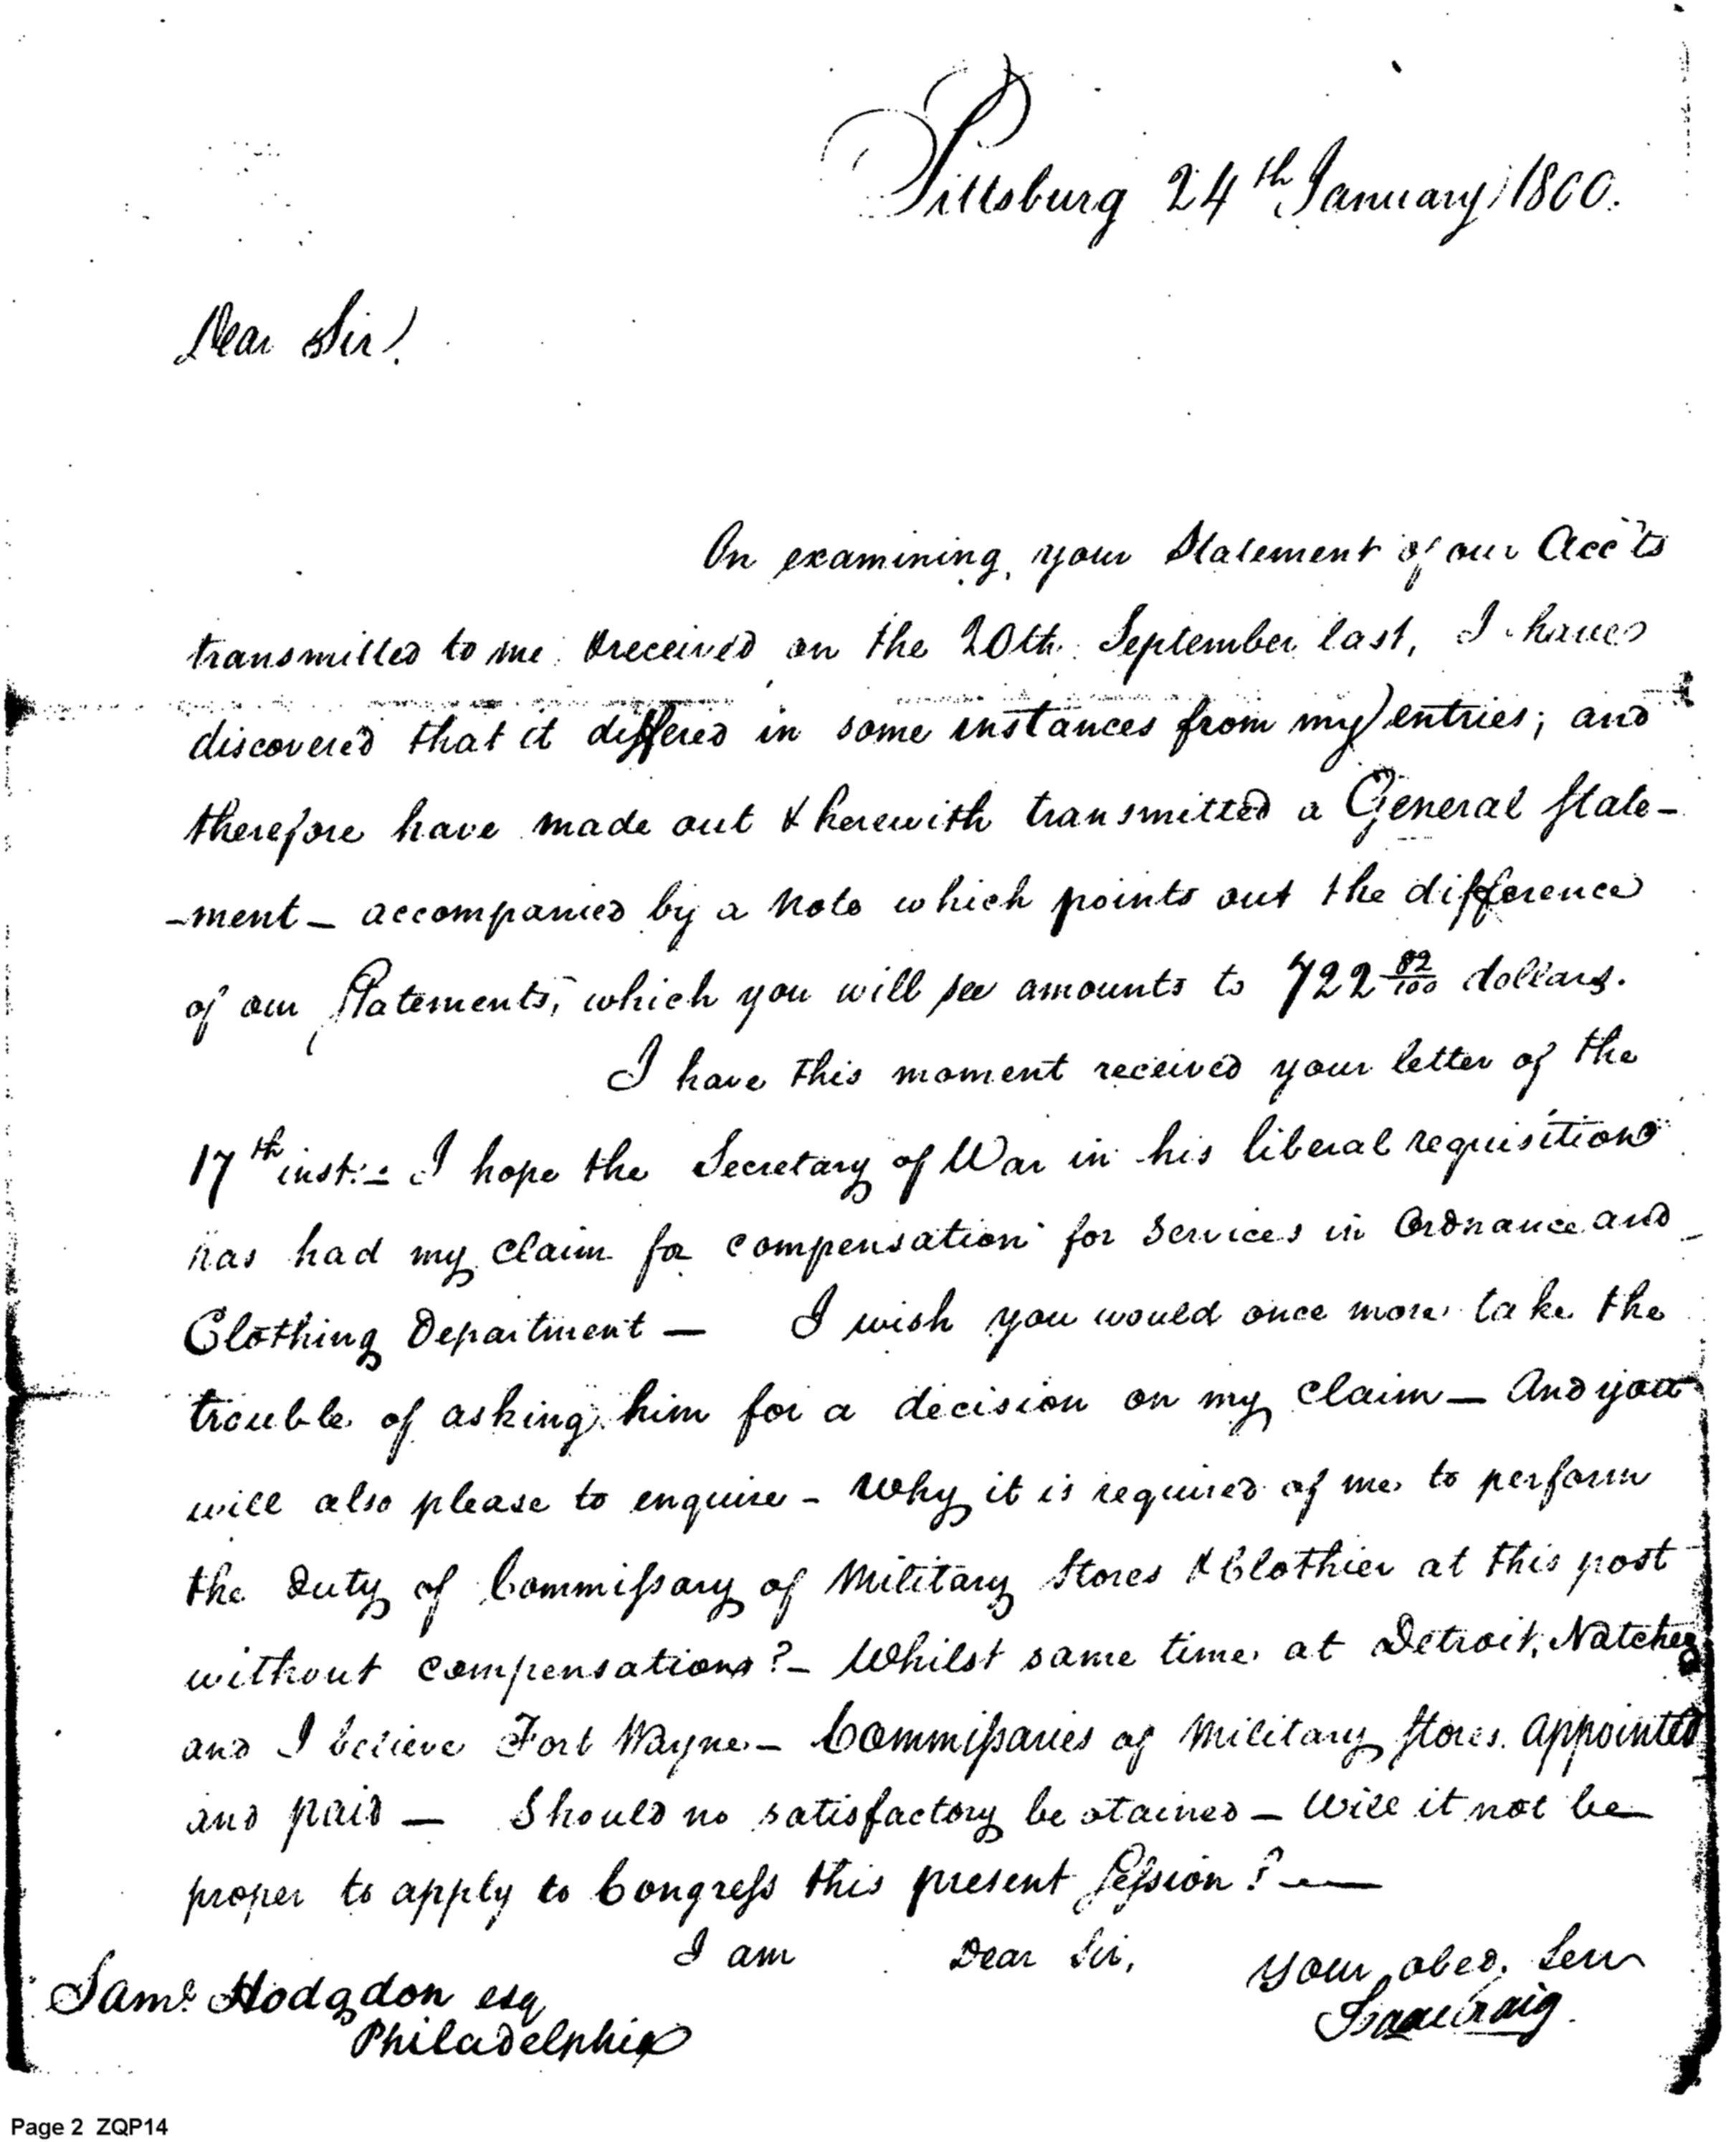 Pittsburg 24th January 1800.
Dear Sir!
On examining your Statement of our Acc'ts
transmitted to me & received on the 20th September last, I have
discovered that it differed in some instances from my entries; and
therefore have made out & herewith transmitted a General State-
-ment - accompanied by a Note which points out the difference
of our Statements, which you will see amounts to 722 82/100 dollars.
I have this moment received your letter of the
17th inst. - I hope the Secretary of War in his liberal requisition
has had my claim for compensation for Services in Ordnance and
Clothing Department - I wish you would once more take the
trouble of asking him for a decision on my claim - And you
will also please to enquire - Why it is required of me to perform
the Duty of Commissary of Military Stores & Clothier at this post
without compensations? - Whilst same time at Detroit, Natchez
and I believe Fort Wayne - Commissaries of Military Stores appointed
and paid - Should no satisfactory be otained - Will it not be
proper to apply to Congress this present Session? -
I am Dear Sir, your obed. Serv
Saml Hodgdon esq
Isaac Craig
Philadelphia
Page 2 ZQP14